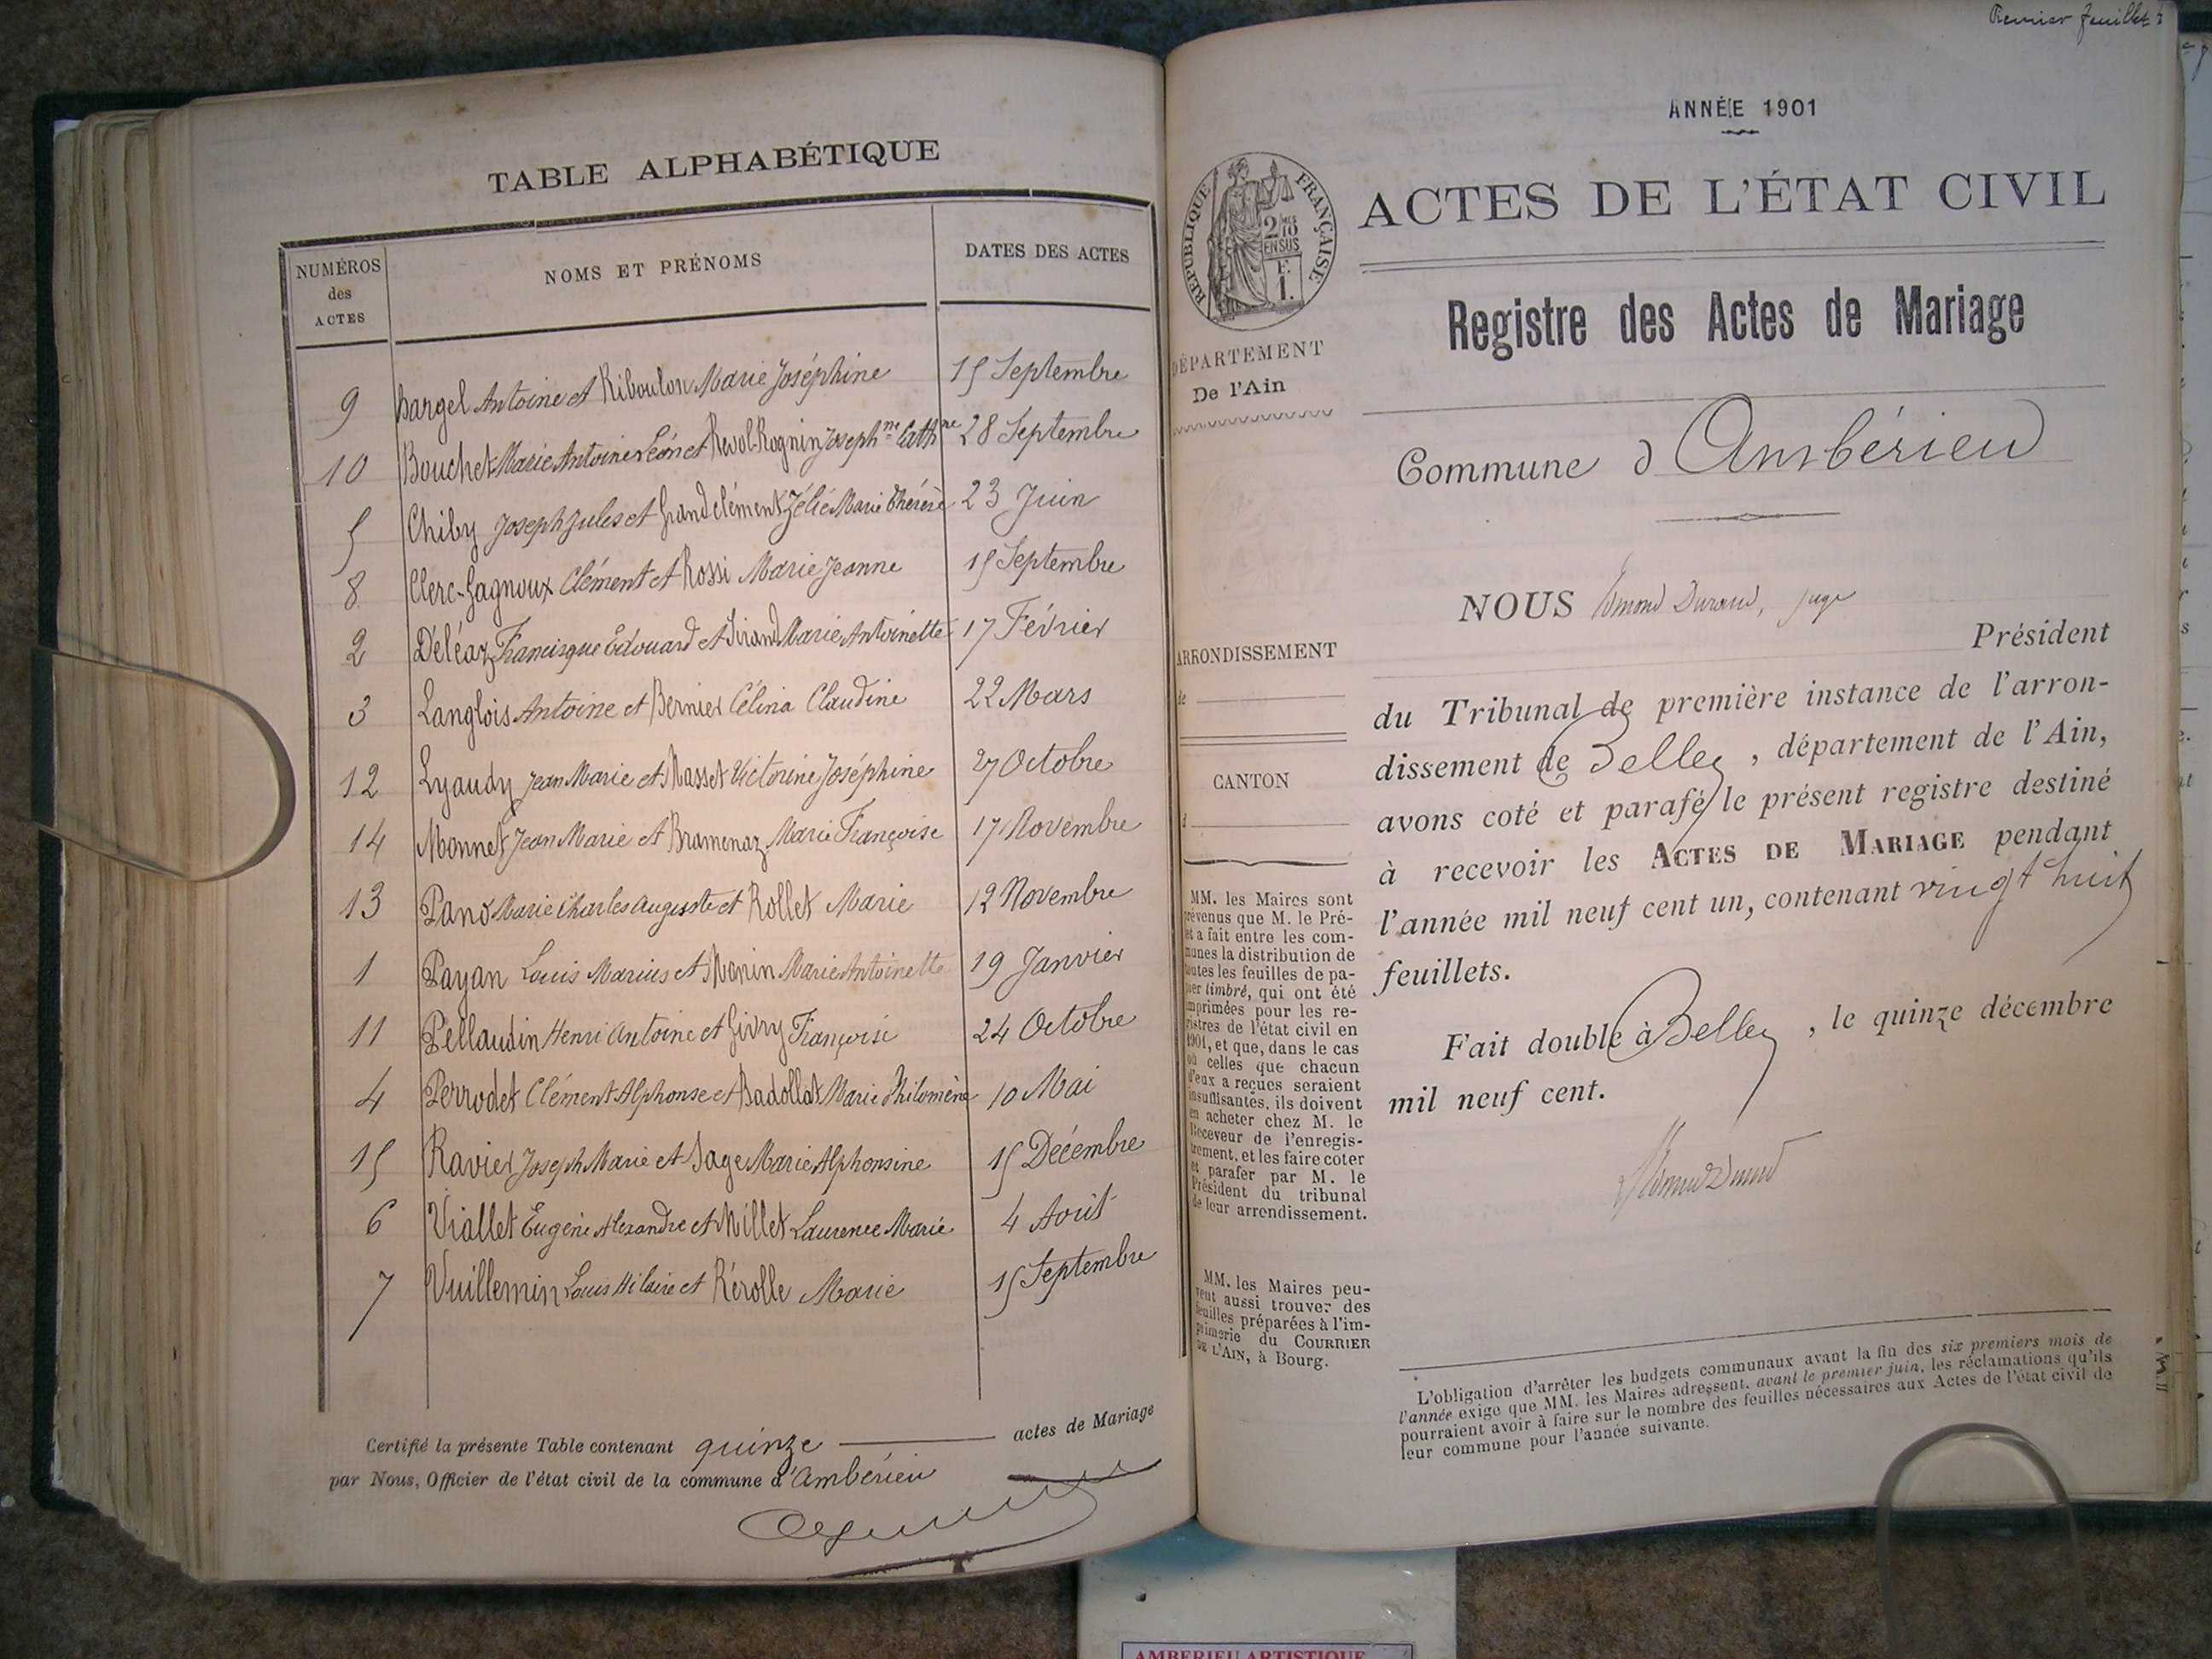 TABLE ALPHABÉTIQUE
NUMÉROS des ACTES
NOMS ET PRÉNOMS
DATES DES ACTES
9 Bargel Antoine et Riboulon Marie Joséphine 15 Septembre
10 Bouchet Marie Antoine Léon et Revol-Rognin Joseph.ne Cath.ne 28 Septembre
5 Chiby Joseph Jules et Grandclément Zélie Marie Thérèse 23 Juin
8 Clerc-Gagnoux Clément et Rossi Marie Jeanne 15 Septembre
2 Déléaz Francisque Edouard et Sirand Marie Antoinette 17 Février
3 Langlois Antoine et Bernier Célina Claudine 22 Mars
12 Lyaudy Jean Marie et Masset Victorine Joséphine 27 Octobre
14 Monnet Jean Marie et Bramenaz Marie Françoise 17 Novembre
13 Pano Marie Charles Auguste et Rollet Marie 12 Novembre
1 Payan Louis Marius et Monin Marie Antoinette 19 Janvier
11 Pellaudin Henri Antoine et Givry Françoise 24 Octobre
4 Perrodet Clément Alphonse et Badollat Marie Philomène 10 Mai
15 Ravier Joseph Marie et Sage Marie Alphonsine 15 Décembre
6 Viallet Eugène Alexandre et Millet Laurence Marie 4 Août
7 Vuillemin Louis Hilaire et Rérolle Marie 15 Septembre
Certifié la présente Table contenant quinze actes de Mariage
par Nous, Officier de l'état civil de la commune d'Ambérieu
Premier feuillet
ANNÉE 1901
RÉPUBLIQUE FRANÇAISE
2 MES 10
EN SUS
F.
1.
ACTES DE L'ÉTAT CIVIL
Registre des Actes de Mariage
DÉPARTEMENT
De l'Ain
Commune d'Ambérieu
NOUS Edmond Durand, juge
Président
du Tribunal de première instance de l'arron-
dissement de Belley, département de l'Ain,
avons coté et parafé le présent registre destiné
à recevoir les ACTES DE MARIAGE pendant
l'année mil neuf cent un, contenant vingt huit
feuillets.
Fait double à Belley, le quinze décembre
mil neuf cent.
Edmond Durand
ARRONDISSEMENT
de
CANTON
d
MM. les Maires sont
prévenus que M. le Pré-
et a fait entre les com-
munes la distribution de
toutes les feuilles de pa-
pier timbré, qui ont été
imprimées pour les re-
gistres de l'état civil en
1901, et que, dans le cas
où celles que chacun
d'eux a reçues seraient
insuffisantes, ils doivent
en acheter chez M. le
Receveur de l'enregis-
trement, et les faire coter
et parafer par M. le
Président du tribunal
de leur arrondissement.
MM. les Maires peu-
vent aussi trouver des
feuilles préparées à l'im-
primerie du COURRIER
DE L'AIN, à Bourg.
L'obligation d'arrêter les budgets communaux avant la fin des six premiers mois de
l'année exige que MM. les Maires adressent, avant le premier juin, les réclamations qu'ils
pourraient avoir à faire sur le nombre des feuilles nécessaires aux Actes de l'état civil de
leur commune pour l'année suivante.
AMBERIEU ARTISTIQUE